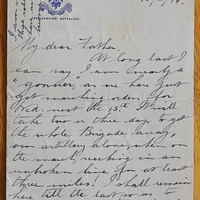 My dear Father,
At long last I
can say I am nearly a
"goner", as we have just
got marching orders for
Wed. next the 15th. It will
take two or three days to get
the whole Brigade away,
our artillery alone, when on
the march, reaching in an
unbroken line for at least
three miles. I shall remain
here till the last so as to